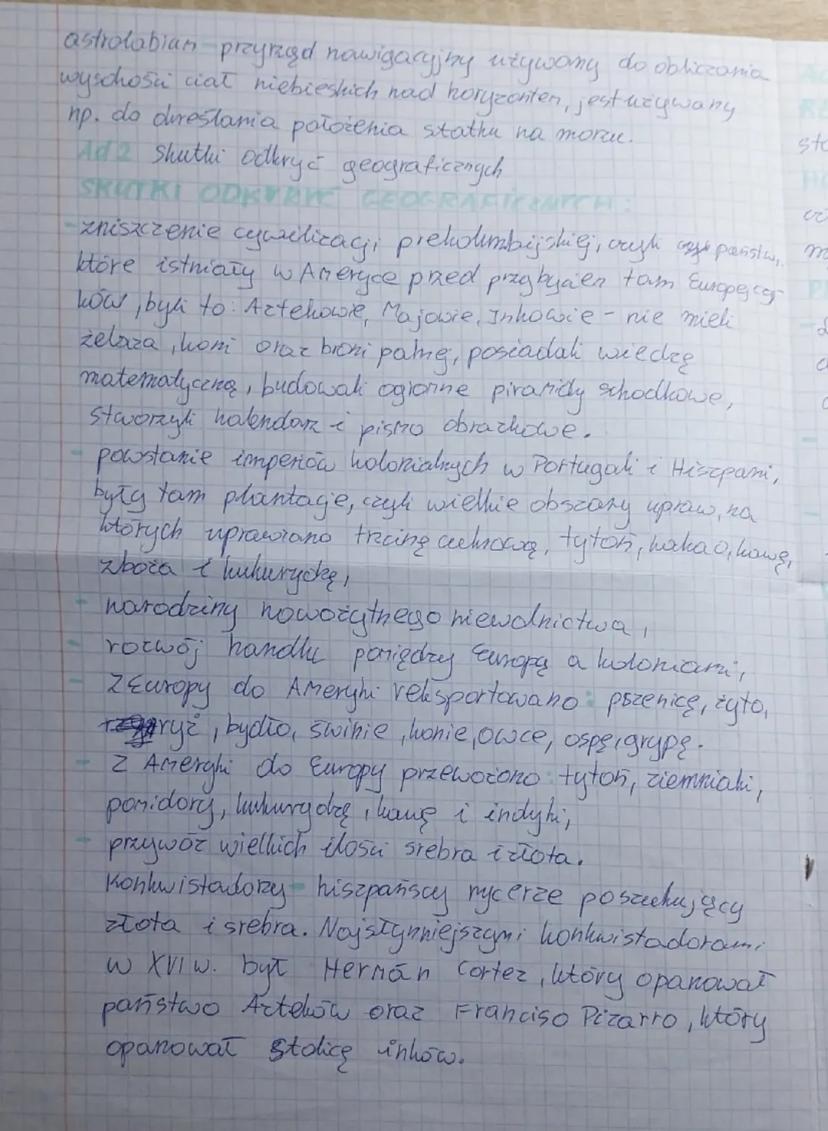 astrolabium - przyrząd nawigacyjny używany do obliczania
wysokości ciał niebieskich nad horyzontem, jest używany
np. do określania położenia statku na morzu.
Ad 2 Skutki odkryć geograficznych
SKUTKI ODKRYĆ GEOGRAFICZNYCH:
- zniszczenie cywilizacji prekolumbijskiej, czyli państw,
które istniały w Ameryce przed przybyciem tam Europejczy-
ków, byli to: Aztekowie, Majowie, Inkowie - nie mieli
żelaza, koni oraz broni palnej, posiadali wiedzę
matematyczną, budowali ogromne piramidy schodkowe,
stworzyli kalendarz i pismo obrazkowe.
- powstanie imperiów kolonialnych w Portugali i Hiszpani,
były tam plantacje, czyli wielkie obszary upraw, na
których uprawiano trzcinę cukrową, tytoń, kakao, kawę,
zboża i kukurydzę,
- narodziny nowożytnego niewolnictwa,
- rozwój handlu pomiędzy Europą a koloniami,
- Z Europy do Ameryki reksportowano: pszenicę, żyto,
ryż, bydło, świnie, konie, owce, ospę, grypę.
- Z Ameryki do Europy przewożono: tytoń, ziemniaki,
pomidory, kukurydzę, kawę i indyki,
- przywóz wielkich ilości srebra i złota.
Konkwistadorzy - hiszpańscy rycerze poszukujący
złota i srebra. Najsłynniejszymi konkwistadorami
w XVI w. był Hernán Cortez, który opanował
państwo Azteków oraz Franciso Pizarro, który
opanował stolicę inków.